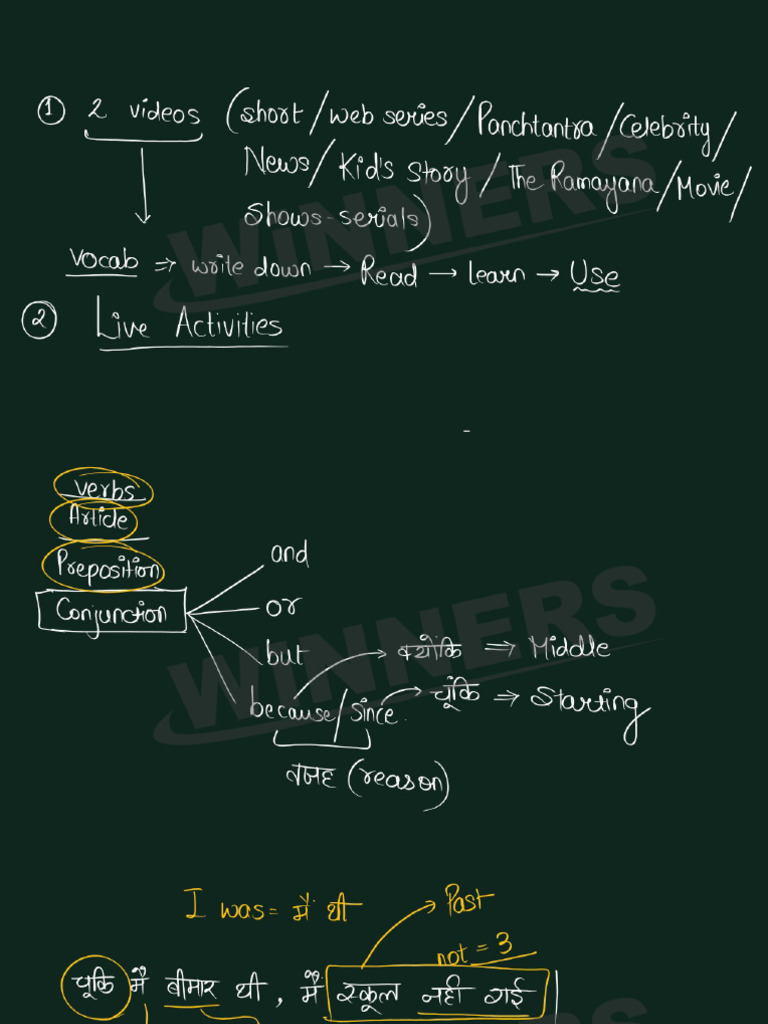 ① 2 videos (short/web series/Panchtantra/Celebrity/
News/Kid's Story/The Ramayana/Movie/
Shows-serials)
vocab ⇒ write down → Read → learn → Use
② Live Activities
verbs
Article
Preposition
Conjunction
and
or
but
because/since.
क्योंकि ⇒ Middle
चूंकि ⇒ Starting
वजह (reason)
I was = मैं थी
Past
not = 3
चूकि मैं बीमार थी, मैं स्कूल नही गई
WINNERS
WINNERS
WINNERS